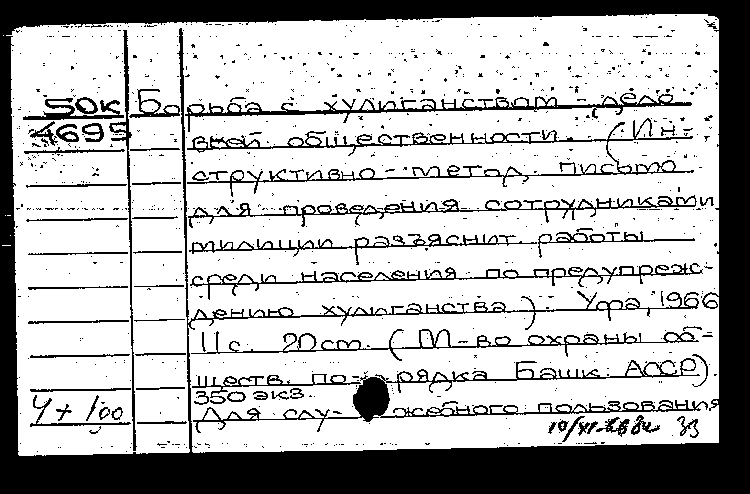 50к Борьба с хулиганством - дело
4695 всей общественности. (Ин-
структивно-метод. письмо
для проведения сотрудниками
милиции разъяснит. работы
среди населения по предупреж-
дению хулиганства). Уфа, 1966
11с. 20см. (М-во охраны об-
ществ. по-рядка Башк. АССР).
350 экз.
Ч+100 Для слу-жебного пользования
33